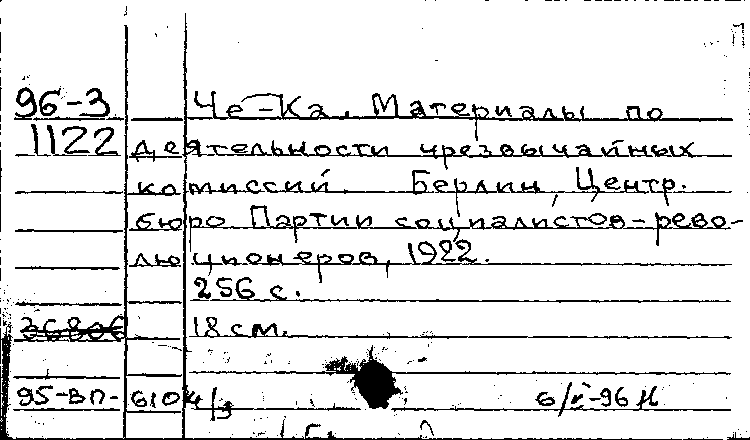 96-3 Че-Ка. Материалы по
1122 деятельности чрезвычайных
комиссий. Берлин, Центр.
бюро Партии социалистов-рево-
люционеров, 1922.
256 с.
18 см.
95-ВП-6104/